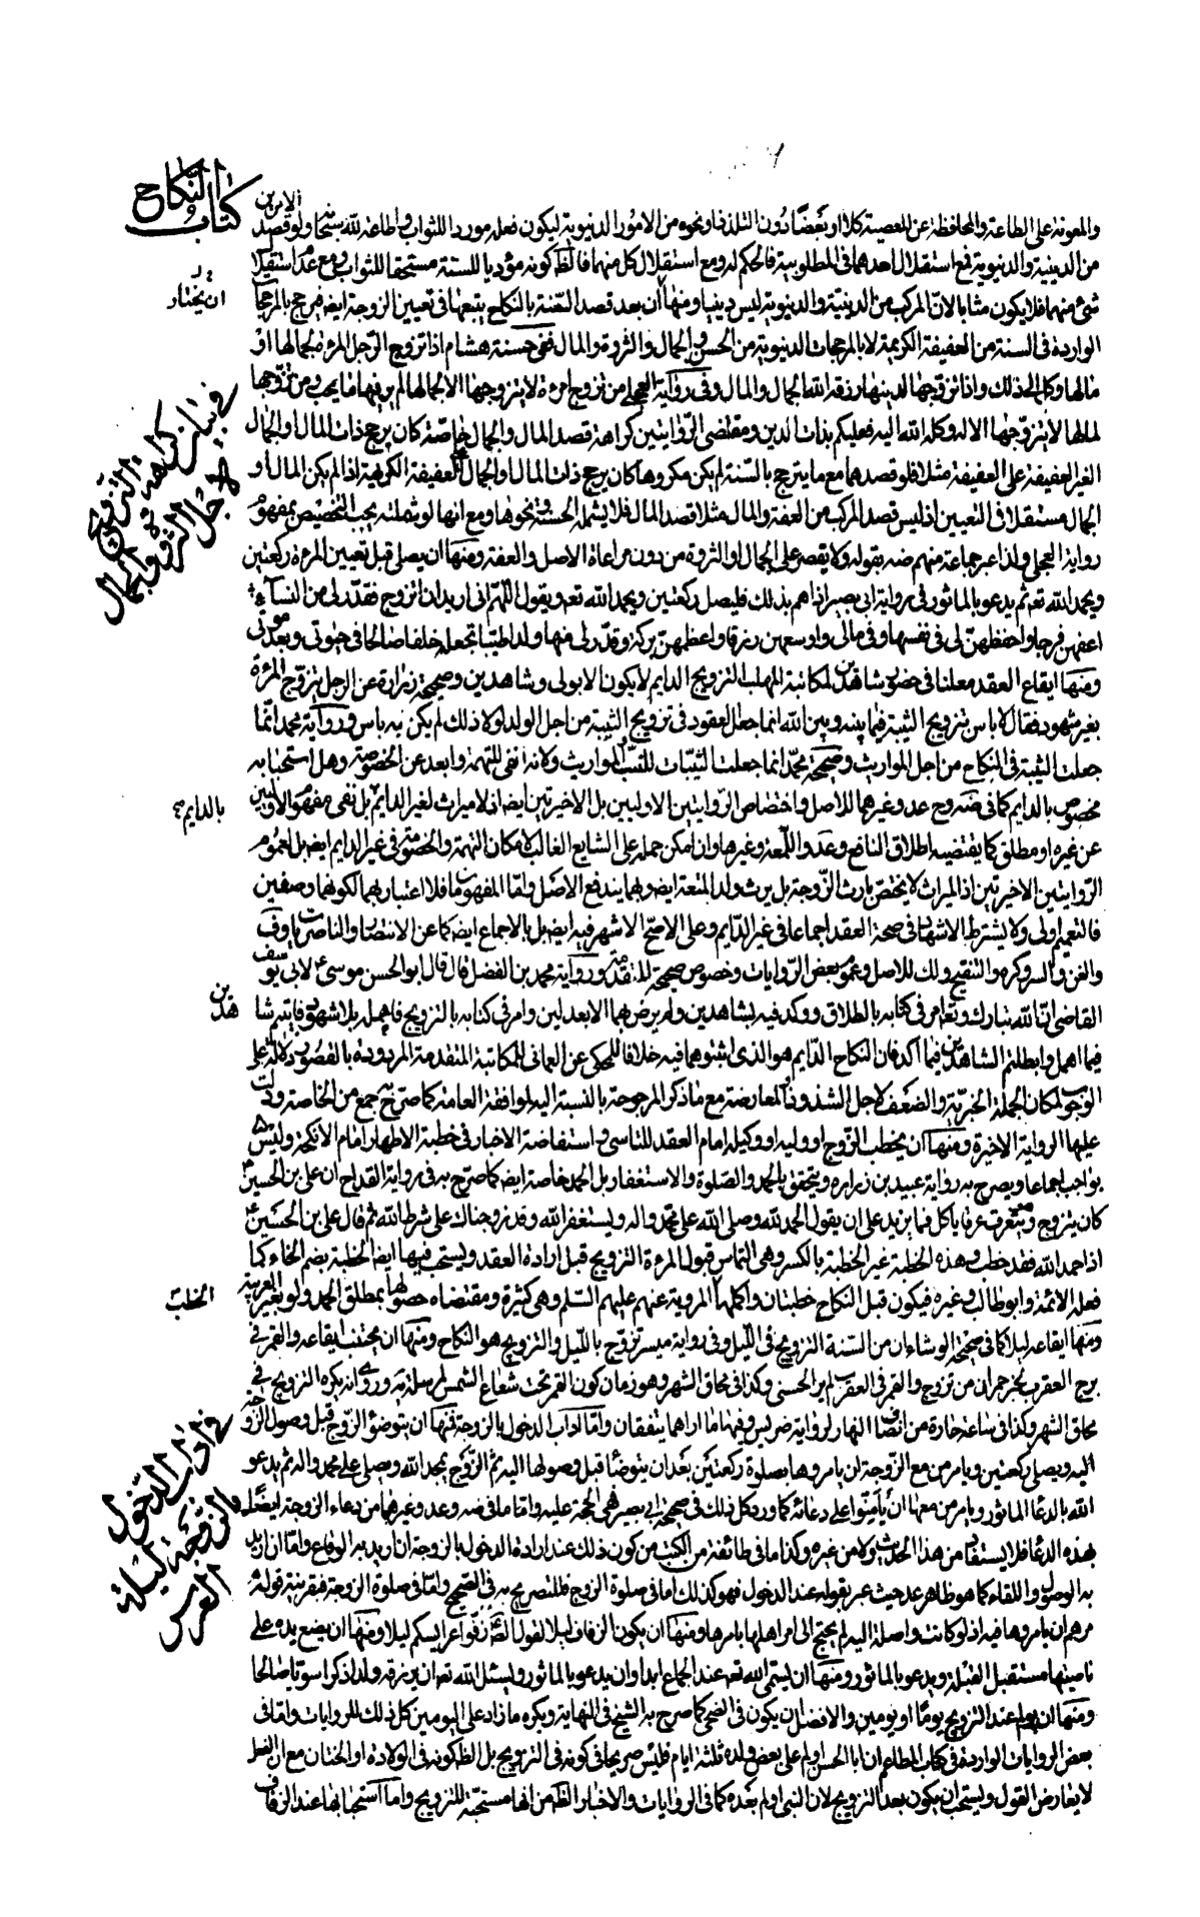 كتاب النكاح
والمعونة على الطاعة والمحافظة عن المعصية كلا او بعضا دون التلذذ ونحوه من الامور الدنيوية ليكون فعله موردا للثواب واطاعة لله سبحانه ولو قصد الامرين
من الدينية والدنيوية فمع استقلال احدهما في المطلوبية فالحكم له ومع استقلال كل منهما فالظ كونه مؤديا للسنة مستحقا للثواب ومع عدم استقلال
شئ منهما فلا يكون مثابا لان المركب من الدينية والدنيوية ليس دينيا ومنها ان بعد قصد السنة بالنكاح يتبعها في تعيين الزوجة ايضا فيرجح بالمرجحات
ان يختار
الواردة في السنة من العفيفة الكريمة لا بالمرجحات الدنيوية من الحسن والجمال والثروة والمال ففي حسنة هشام اذا تزوج الرجل المرءة لجمالها او
مالها وكل الى ذلك واذا تزوجها لدينها رزقه الله الجمال والمال وفي رواية العجلي من تزوج امرءة لا يتزوجها الا لجمالها لم ير فيها ما يحب ومن تزوجها
لمالها لا يتزوجها الا له وكله الله اليه فعليكم بذات الدين ومقتضى الروايتين كراهة قصد المال والجمال خاصة كان يرجح ذات المال والجمال
في بيان كراهة التزويج لاجل الثروة والجمال
الغير العفيفة على العفيفة مثلا فلو قصدهما مع ما يترجح بالسنة لم يكن مكروها كان يرجح ذات المال والجمال العفيفة الكريمة اذا لم يكن المال او
الجمال مستقلا في التعيين اذ ليس قصد المركب من العفة والمال مثلا قصد المال فلا يشمله الحسنة ونحوها ومع انها لو شملته يجب التخصيص بمفهوم
رواية العجلي ولذا عبر جماعة منهم ضه بقوله ولا يقصر على الجمال او الثروة من دون مراعاة الاصل والعفة ومنها ان يصلى قبل تعيين المرءة ركعتين
ويحمد الله تع ثم يدعو بالماثور في رواية ابى بصير اذا هم بذلك فليصل ركعتين ويحمد الله تع ويقول اللهم انى اريد ان اتزوج فقدر لى من النسآء
اعفهن فرجا واحفظهن لى في نفسها وفي مالى واوسعهن رزقا واعظمهن بركة وقدر لى منها ولدا طيبا تجعله خلفا صالحا في حيوتى وبعد موتى
ومنها ايقاع العقد معلنا في حضور شاهدين لمكاتبة المهلب التزويج الدايم لا يكون الا بولى وشاهدين وصحيحة زرارة عن الرجل يتزوج المرءة
بغير شهود فقال لا باس بتزويج البتة فيما بينه وبين الله انما جعل الشهود في تزويج البتة من اجل الولد لولا ذلك لم يكن به باس ورواية محمد انما
جعلت البينة في النكاح من اجل المواريث وصحيحة محمد انما جعلت البينات للنسب والمواريث ولانه انفى للتهمة وابعد عن الخصومة وهل استحبابه
مخصوص بالدايم كما في ضه وعد وغيرهما للاصل واختصاص الروايتين الاوليين بل الاخيرتين ايضا اذ لا ميراث لغير الدايم بل نفى مفهوم الاوليين
بالدايم
عن غيره او مطلق كما يقتضيه اطلاق النافع وعد واللمعة وغيرها وان امكن حمله على الشايع الغالب لامكان التهمة والخصومة في غير الدايم ايضا بل لعموم
الروايتين الاخيرتين اذ الميراث لا يختص بارث الزوجة بل يرث ولد المتعة ايضا وبهما يندفع الاصل واما المفهومان فلا اعتبار بهما لكونهما وصفين
فالتعميم اولى ولا يشترط الاشهاد في صحة العقد اجماعا في غير الدايم وعلى الاصح الاشهر فيه ايضا بل بالاجماع ايضا كما عن الانتصار والناصريات وف
والغنية والسرائر وكره والتنقيح وذلك للاصل وعموم بعض الروايات وخصوص صحيحة المتقدمة ورواية محمد بن الفضل قال قال ابو الحسن موسى ع لابى يوسف
القاضى ان الله تبارك وتعالى امر في كتابه بالطلاق ووكد فيه بشاهدين ولم يرض بهما الا بعدلين وامر في كتابه بالتزويج فاهمله بلا شهود فاثبتم شا
هدين
فيما اهمل وابطلتم الشاهدين فيما اكد فان النكاح الدايم هو الذى اثبتوهما فيه خلافا للمحكى عن العمانى للمكاتبة المتقدمة المردودة بالقصور دلالة على
الوجوب لمكان الجملة الخبرية والضعف لاجل الشذوذ والمعارضة مع ما ذكر المرجوحة بالنسبة اليه لموافقة العامة كما صرح جمع من الخاصة ودلت
عليها الرواية الاخيرة ومنها ان يخطب الزوج او وليه او وكيله امام العقد للتاسى واستفاضة الاخبار في خطبة الاطهار امام الانكحة وليس
بواجب اجماعا ويصرح به رواية عبيد بن زرارة ويتحقق بالحمد والصلوة والاستغفار بل الحمد خاصة ايضا كما صرح به في رواية القداح ان على بن الحسين
كان يتزوج وهو يتعرق عرقا ياكل فما يزيد على ان يقول الحمد لله وصلى الله على محمد واله ويستغفر الله وقد زوجناك على شرط الله ثم قال على بن الحسين ع
اذا حمد الله فقد خطب وهذه الخطبة غير الخطبة بالكسر وهى التماس قبول المرءة التزويج قبل ارادة العقد ويستحب فيها ايضا الخطبة بضم الخاء كما
فعله الائمة وابو طالب وغيره فيكون قبل النكاح خطبتان واكملها المروية عنهم عليهم السلم وهى كثيرة ومقتضاه حصولها بمطلق الحمد ولو بغير العربية
الخطب
ومنها ايقاعه ليلا كما في صحيحة الوشاء ان من السنة التزويج في الليل وفي رواية ميسر تزوج بالليل والتزويج هو النكاح ومنها ان يجتنب ايقاعه والقمر في
برج العقرب لخبر حمران من تزوج والقمر في العقرب لم ير الحسنى وكذا في محاق الشهر وهو زمان كون القمر تحت شعاع الشمس لمرسلة يه وروى انه يكره التزويج في
محاق الشهر وكذا في ساعة حارة من انصاف النهار لرواية ضريس وفيها ما اراهما يتفقان واما آداب الدخول بالزوجة فمنها ان يتوضؤ الزوج قبل وصول الزوجة
في اداب الدخول والزوجة ليلة العرس
اليه ويصلى ركعتين ويامر من مع الزوجة ان يامروها بصلوة ركعتين بعد ان يتوضأ قبل وصولها اليه ثم الزوج يحمد الله ويصلى على محمد واله ثم يدعو
الله بالدعاء الماثور ويامر من معها ان يأمنوا على دعائه كما ورد كل ذلك في صحيحة ابى بصير فهى الحجة عليه واما ما في ضه وعد وغيرهما من دعاء الزوجة ايضا
بهذه الدعاء فلا يستفاد من هذا الحديث ولا من غيره وكذا ما في طائفة من الكتب من كون ذلك عند ارادة الدخول بالزوجة ان اريد به الوقاع واما ان اريد
به الوصول واللقاء كما هو ظاهر عد حيث عبر بقوله عند الدخول فهو كذلك اما في صلوة الزوج فللتصريح به في الصحيح واما في صلوة الزوجة فبقرينة قوله ثم
مرهم ان يامروها فيه اذ لو كانت واصلة اليه لم يحتج الى امر اهلها بامرها ومنها ان يكون الزفاف ليلا لقول الصادق زفوا عرايسكم ليلا ومنها ان يضع يده على
ناصيتها مستقبل القبلة ويدعو بالماثور ومنها ان يسمى الله تع عند الجماع ابدا وان يدعو بالماثور ويسئل الله تع ان يرزقه ولدا ذكرا سويا صالحا
ومنها ان يولم عند التزويج يوما او يومين والافضل ان يكون في الضحى كما صرح به الشيخ في النهاية ويكره ما زاد على اليومين كل ذلك للروايات واما في
بعض الروايات الواردة في كتاب المطاعم ان ابا الحسن اولم على بعض ولده ثلثة ايام فليس صريحا في كونه في التزويج بل الظ كونه في الولادة او الختان مع ان الفعل
لا يعارض القول ويستحب ان يكون بعد التزويج لان النبى اولم بعده كما في الروايات والاخبار الظ من انها مستحبة للتزويج واما استحبابها عند الزفاف